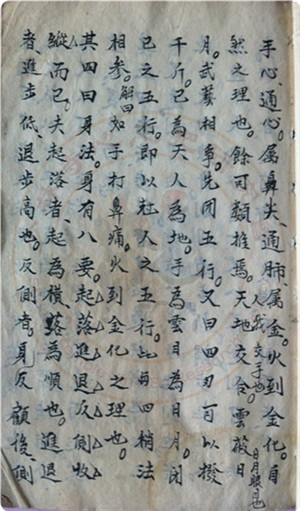 手心通心。屬鼻尖、通肺。屬金。火到金化。自
然之理也。餘可類推焉。天地交合。雲蔽日
人我交手也 日月眼目也
月。武藝相爭。先閉五行。又曰四刃可以撥
千斤。已為天人為地。手為雲目為日月。閉
已之五行。即以尅人之五行。此與四梢法
相參。解曰 如手打鼻痛。火到金化之理也。
其四曰身法。身有八要。起落進退反側收
縱而已。夫起落者、起為橫。落為順也。進退
者、進步低、退步高也。反側者。身反顧後、側